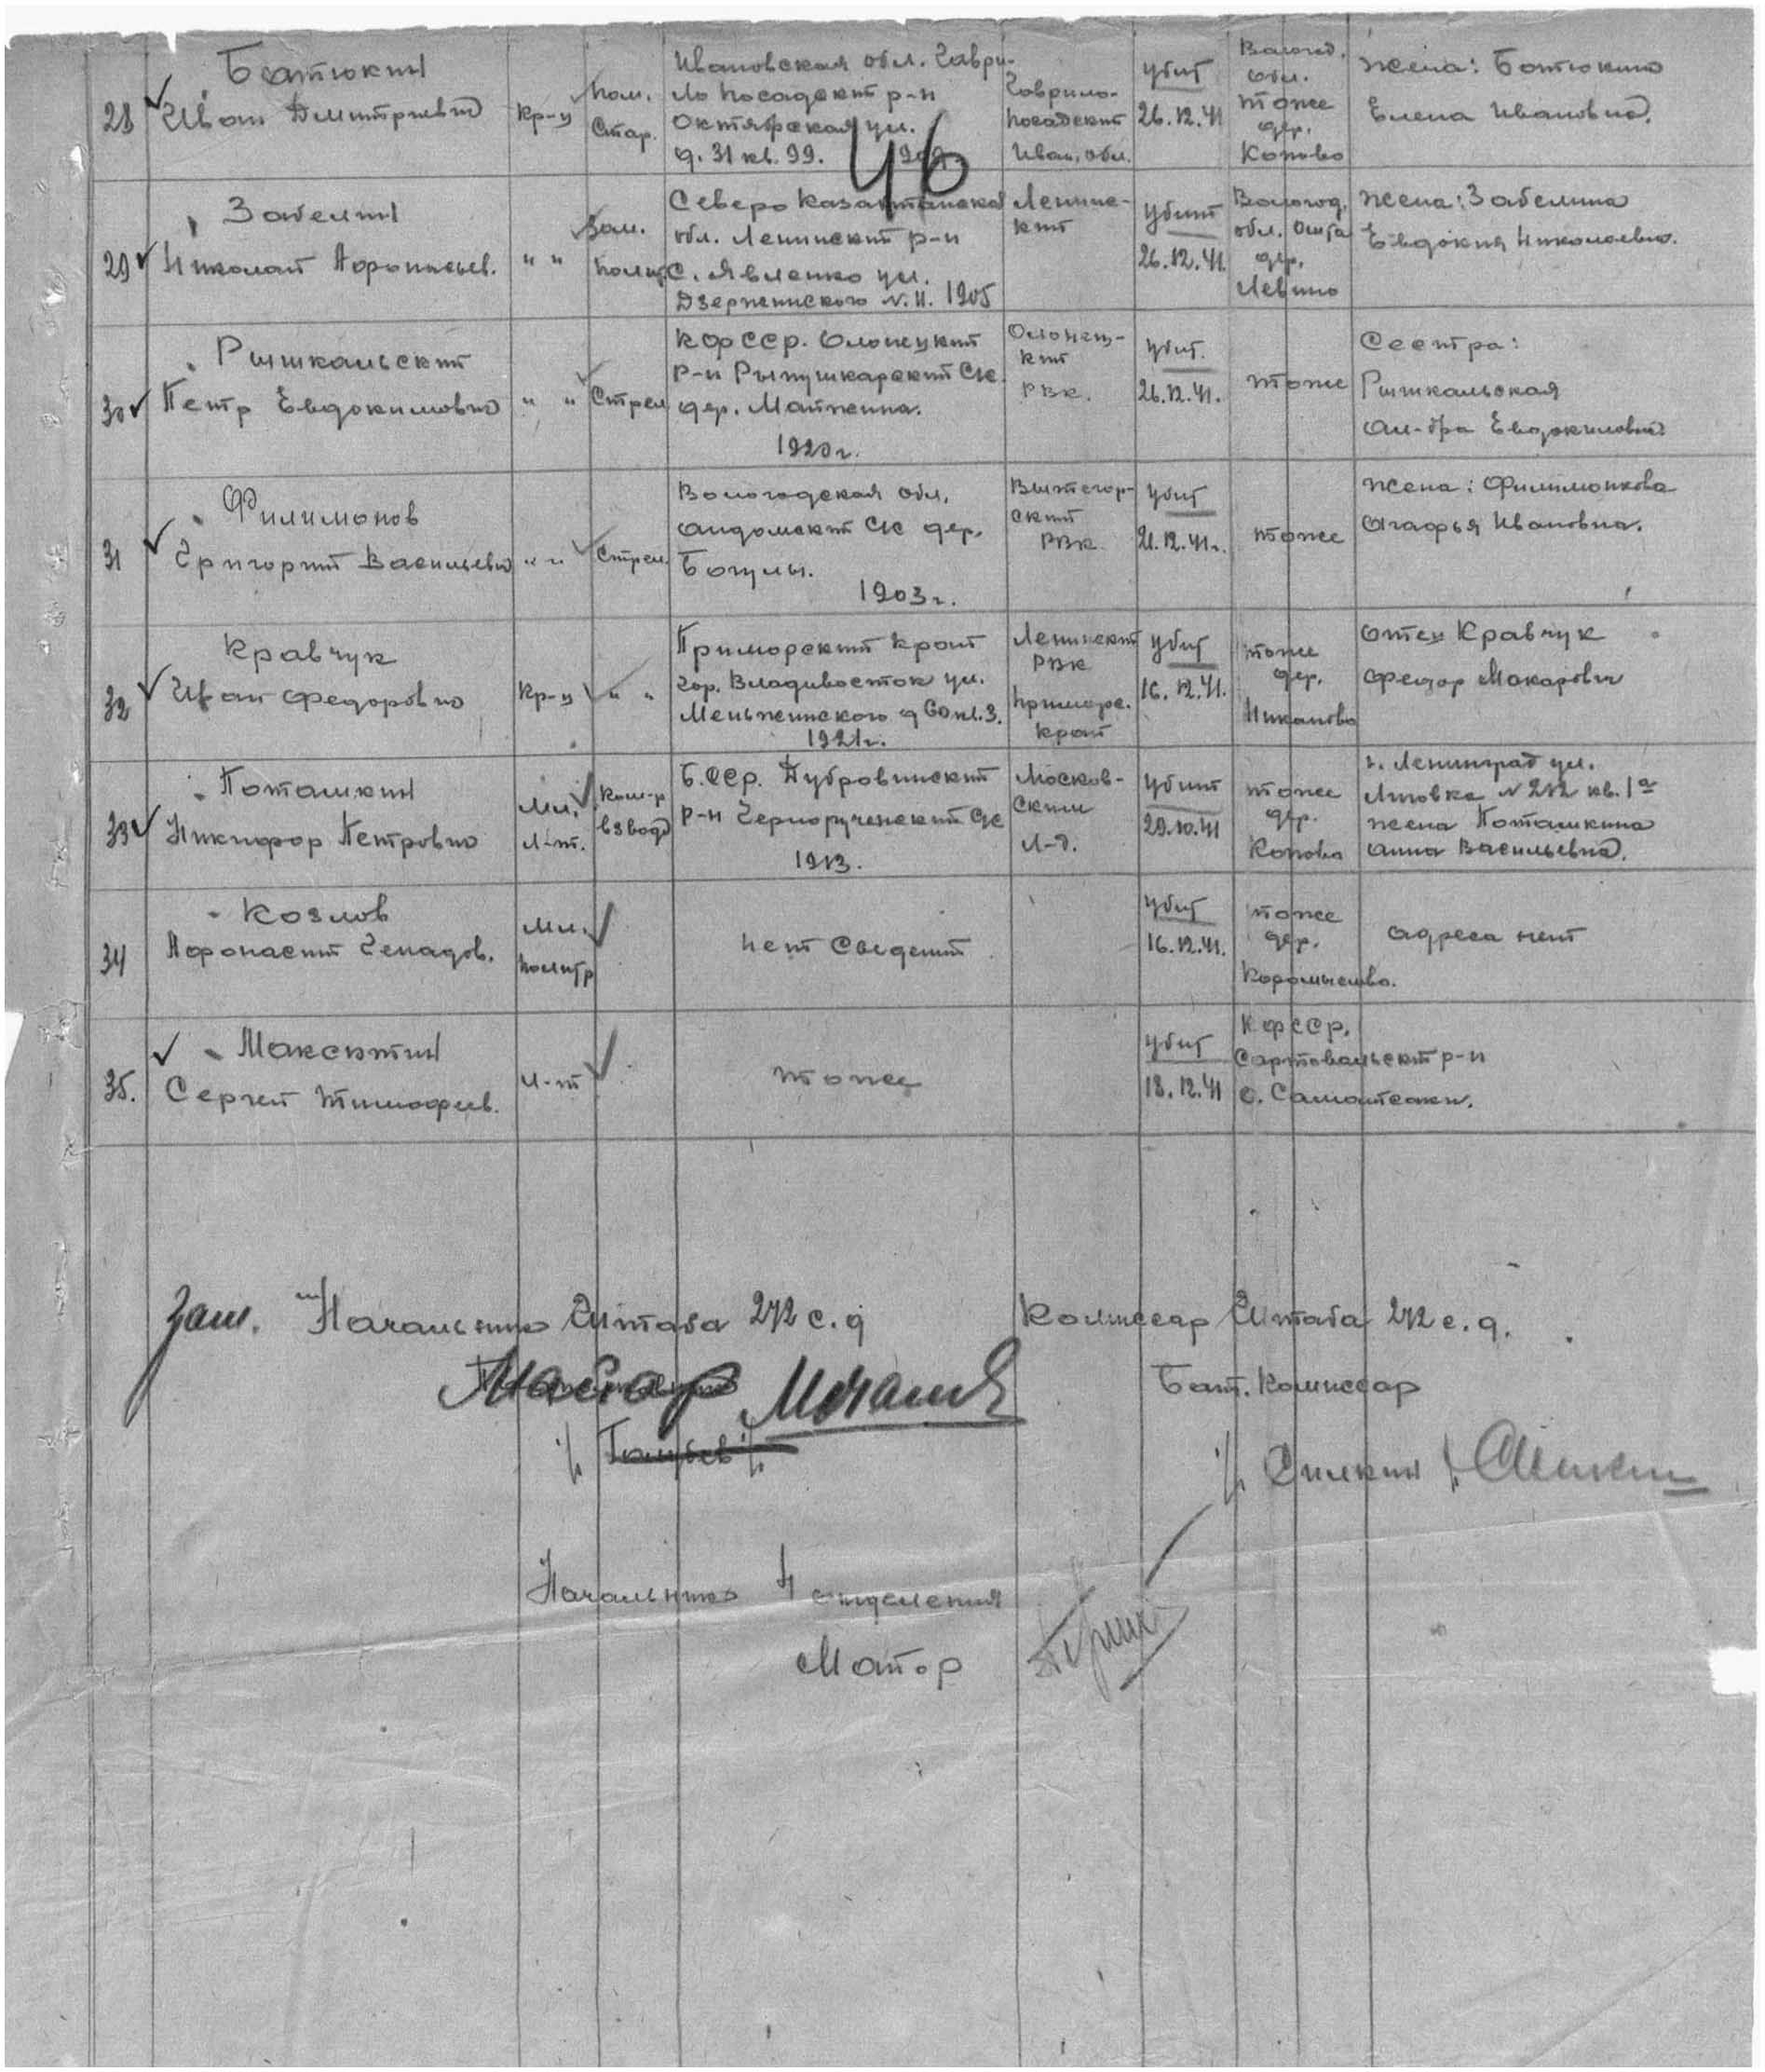 28 Батюкин
Иван Дмитриевич
кр-ц
пом.
Стар.
Ивановская обл. Гаври-
ло Посадский р-н
Октябрская ул.
д. 31 кв. 99. 1909
Гаврило-
посадский
Иван. обл.
убит
26.12.41
Волог.
обл.
тоже
дер.
Коново
жена: Батюкина
Елена Ивановна.
46
29 Забелин
Николай Афонасьев.
" "
Зам.
полит
Северо Казахтанская
обл. Ленинский р-н
с. Явленко ул.
Дзержинского N. 11. 1905
Ленинс-
кий
убит
26.12.41.
Волог.
обл. Ошта
дер.
Левино
жена: Забелина
Евдокия Николаевна.
30 Рышкальский
Петр Евдокимович
" "
Стрел
КФССР. Олонецкий
р-н Рыпушкарский С/С
дер. Майжина.
1920 г.
Олонец-
кий
РВК.
убит.
26.12.41.
тоже
Сестра:
Рышкальская
Ал-дра Евдокимовна
31 Филимонов
Григорий Васильевич
" "
Стрел.
Вологодская обл.
Андомский С/С дер.
Богулы.
1903 г.
Вытегор-
ский
РВК.
убит
21.12.41 г.
тоже
жена: Филимонкова
Агафья Ивановна.
32 Кравчук
Иван Федорович
кр-ц
" "
Приморский край
гор. Владивосток ул.
Меньжинского д 60 кв. 3.
1921 г.
Ленинский
РВК
приморс.
край
убит
16.12.41.
тоже
дер.
Никаново
отец Кравчук
Федор Макарович
33 Поташкин
Никифор Петрович
Мл.
Л-т.
Ком-р
взвода
Б.ССР. Дубровинский
р-н Чернорученский С/С
1913.
Москов-
ским
Л-д.
убит
29.10.41
тоже
дер.
Коново
г. Ленинград ул.
Лиговка N 212 кв. 1а
жена Поташкина
Анна Васильевна.
34 Козлов
Афонасий Генадов.
Мл.
политр
нет сведений
убит
16.12.41.
тоже
дер.
Коромыслово.
адреса нет
35. Максютин
Сергей Тимофеев.
Л-т
тоже
убит
18.12.41
КФССР.
Сартовальский р-н
о.
Зам. Начальника Штаба 272 с.д
Комиссар Штаба 272 с.д.
Майор
Бат. Комиссар
/ Голубев /
/ Силкин /
Начальник 4 отделения
Майор